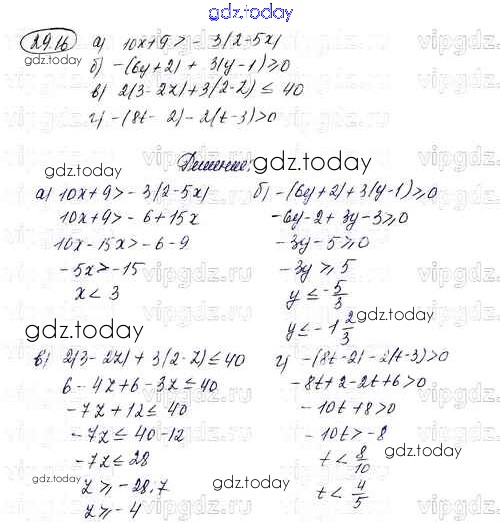 gdz.today
29.16 а) 10x+9>-3(2-5x)
gdz.today
б) -(6y+2)+3(y-1)≥0
в) 2(3-2z)+3(2-z)≤40
г) -(8t-2)-2(t-3)>0
Решение:
gdz.today
gdz.today
а) 10x+9>-3(2-5x)
10x+9>-6+15x
10x-15x>-6-9
-5x>-15
x<3
б) -(6y+2)+3(y-1)≥0
-6y-2+3y-3≥0
-3y-5≥0
-3y≥5
y≤-5/3
y≤-1 2/3
gdz.today
gdz.today
в) 2(3-2z)+3(2-z)≤40
6-4z+6-3z≤40
-7z+12≤40
-7z≤40-12
-7z≤28
z≥-28:7
z≥-4
г) -(8t-2)-2(t-3)>0
-8t+2-2t+6>0
-10t+8>0
-10t>-8
t<8/10
t<4/5
gdz.today
gdz.today
vipgdz.ru